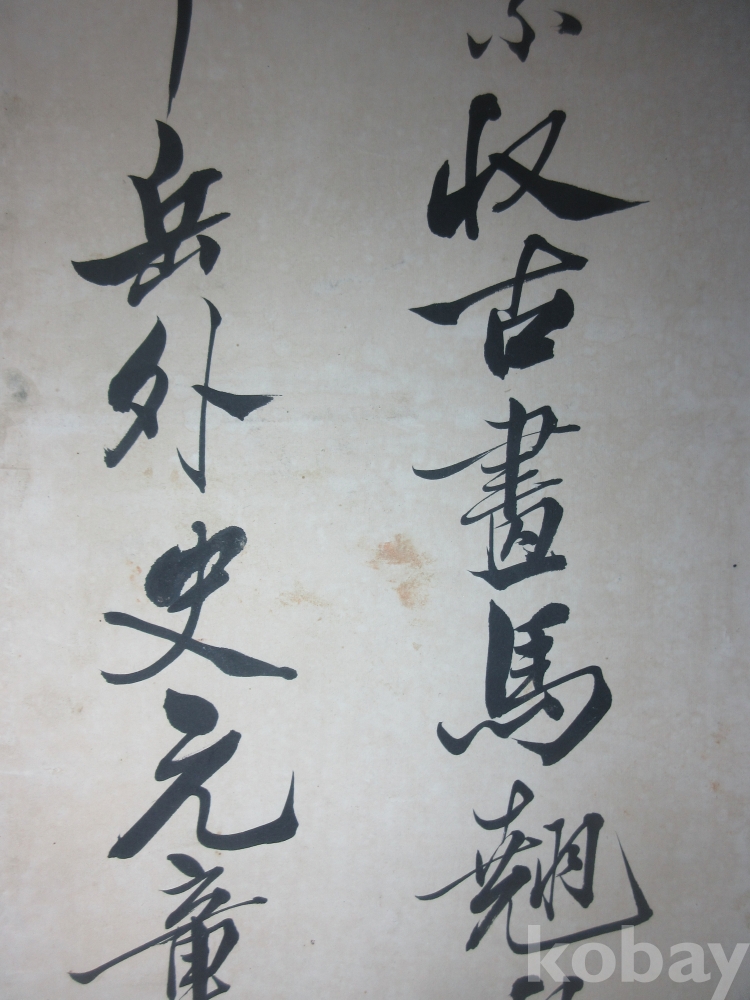 収古畫馬翹
岳外史元章
kobay